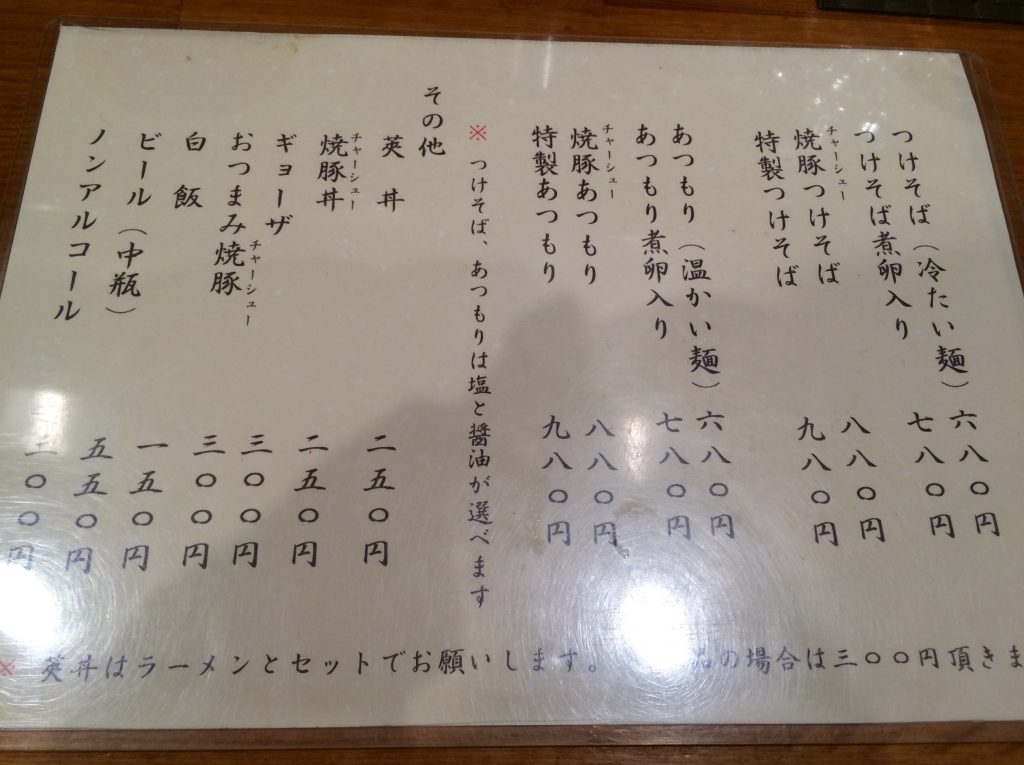 つけそば（冷たい麺）六八〇円
つけそば煮卵入り七八〇円
チャーシュー
焼豚つけそば八八〇円
特製つけそば九八〇円
あつもり（温かい麺）六八〇円
あつもり煮卵入り七八〇円
チャーシュー
焼豚あつもり八八〇円
特製あつもり九八〇円
※つけそば、あつもりは塩と醤油が選べます
その他
英丼二五〇円
チャーシュー
焼豚丼二五〇円
ギョーザ三〇〇円
チャーシュー
おつまみ焼豚三〇〇円
白飯一五〇円
ビール（中瓶）五五〇円
ノンアルコール三〇〇円
※英丼はラーメンとセットでお願いします。の場合は三〇〇円頂きま